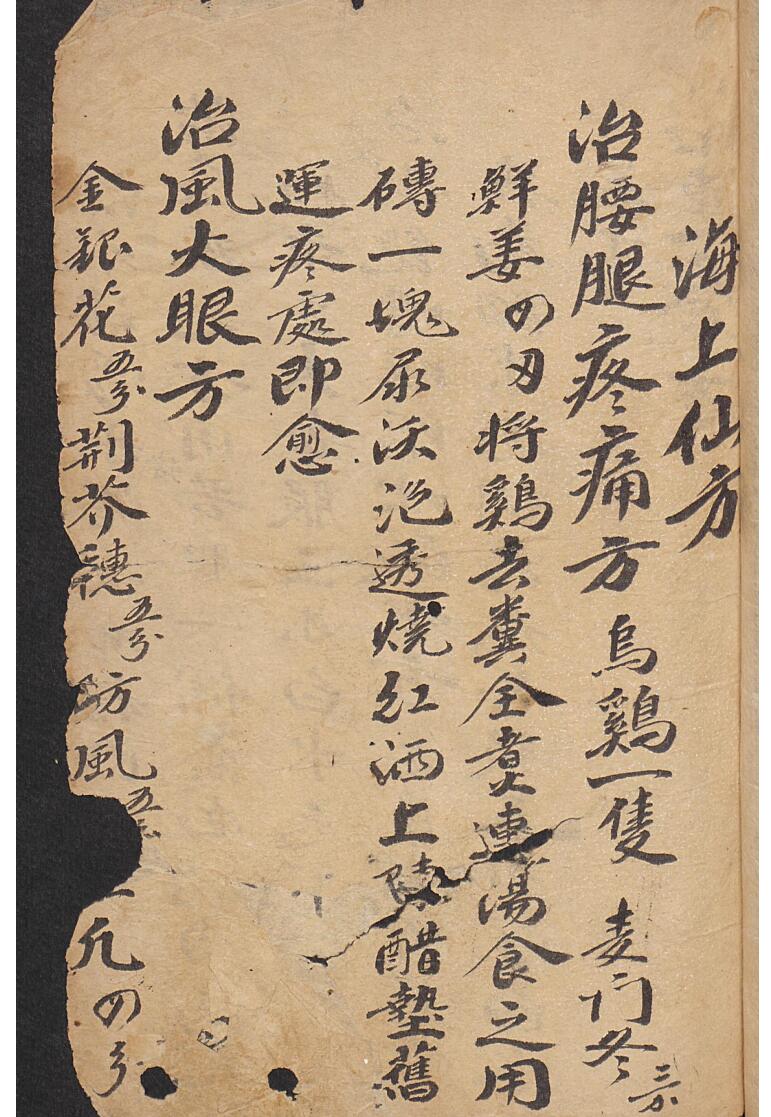 海上仙方
治腰腿疼痛方 烏鷄一隻 麦门冬三
鮮姜四刄将鷄去糞全煮連湯食之用
磚一塊尿沃泡透燒红洒上陳醋墊舊
運疼處即愈
治風火眼方
金銀花五分荆芥穗五分防風五 九四分